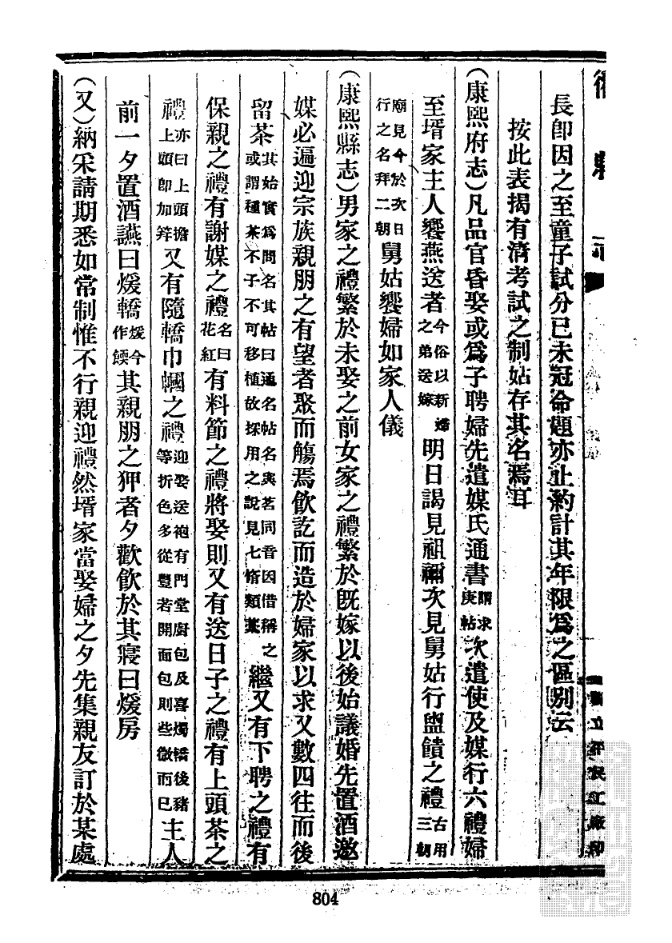 長卽因之至童子試分已未冠命題亦止約計其年限爲之區别云
按此表揭有清考試之制姑存其名焉耳
(康熙府志)凡品官昏娶或爲子聘婦先遣媒氏通書謂求庚帖次遣使及媒行六禮婦
至壻家主人饗燕送者今俗以新婦之弟送嫁明日謁見祖禰次見舅姑行盥饋之禮古用三朝
廟見今於次日行之名拜二朝舅姑饗婦如家人儀
(康熙縣志)男家之禮繁於未娶之前女家之禮繁於旣嫁以後始議婚先置酒邀
媒必遍迎宗族親朋之有望者聚而觴焉飮訖而造於婦家以求又數四往而後
留茶其始實爲問名其帖曰通名帖名與茗同音因借稱之或謂種茶不子不可移植故採用之說見七脩類藁繼又有下聘之禮有
保親之禮有謝媒之禮名曰花紅有料節之禮將娶則又有送日子之禮有上頭茶之
禮亦曰上頭擔上頭卽加笄又有隨轎巾幗之禮迎娶送袍有門堂廚包及喜燭轎後豬等折色多從豐若開面包則些微而已主人
前一夕置酒讌曰煖轎煖今作餪其親朋之狎者夕歡飮於其寢曰煖房
(又)納采請期悉如常制惟不行親迎禮然壻家當娶婦之夕先集親友訂於某處
804